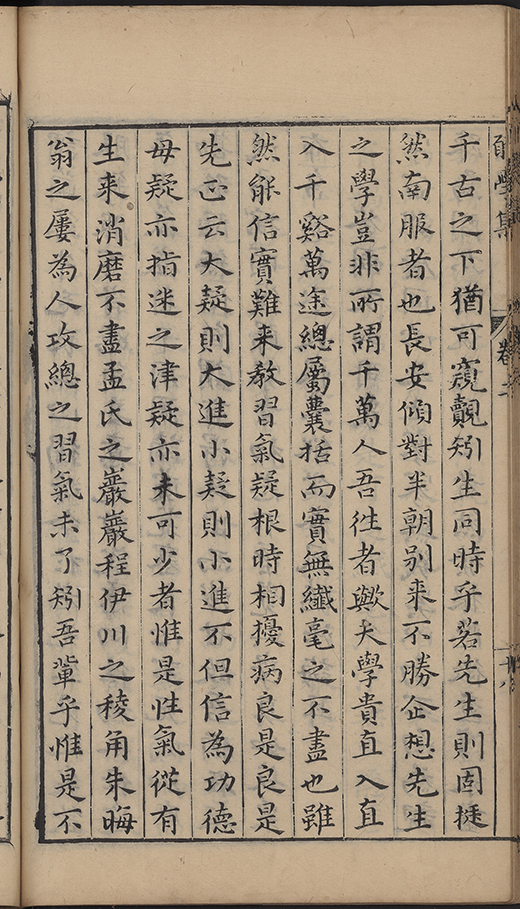 千古之下猶可窺覿矧生同時乎若先生則固挺
然南服者也長安傾對半朝别来不勝企想先生
之學豈非所謂千萬人吾徃者歟夫學貴直入直
入千谿萬途總屬囊括而實無纎毫之不盡也雖
然能信實難来教習氣疑根時相擾病良是良是
先正云大疑則大進小疑則小進不但信為功德
母疑亦指迷之津疑亦未可少者惟是性氣從有
生来消磨不盡孟氏之巖巖程伊川之稜角朱晦
翁之屢為人攻總之習氣未了矧吾輩乎惟是不